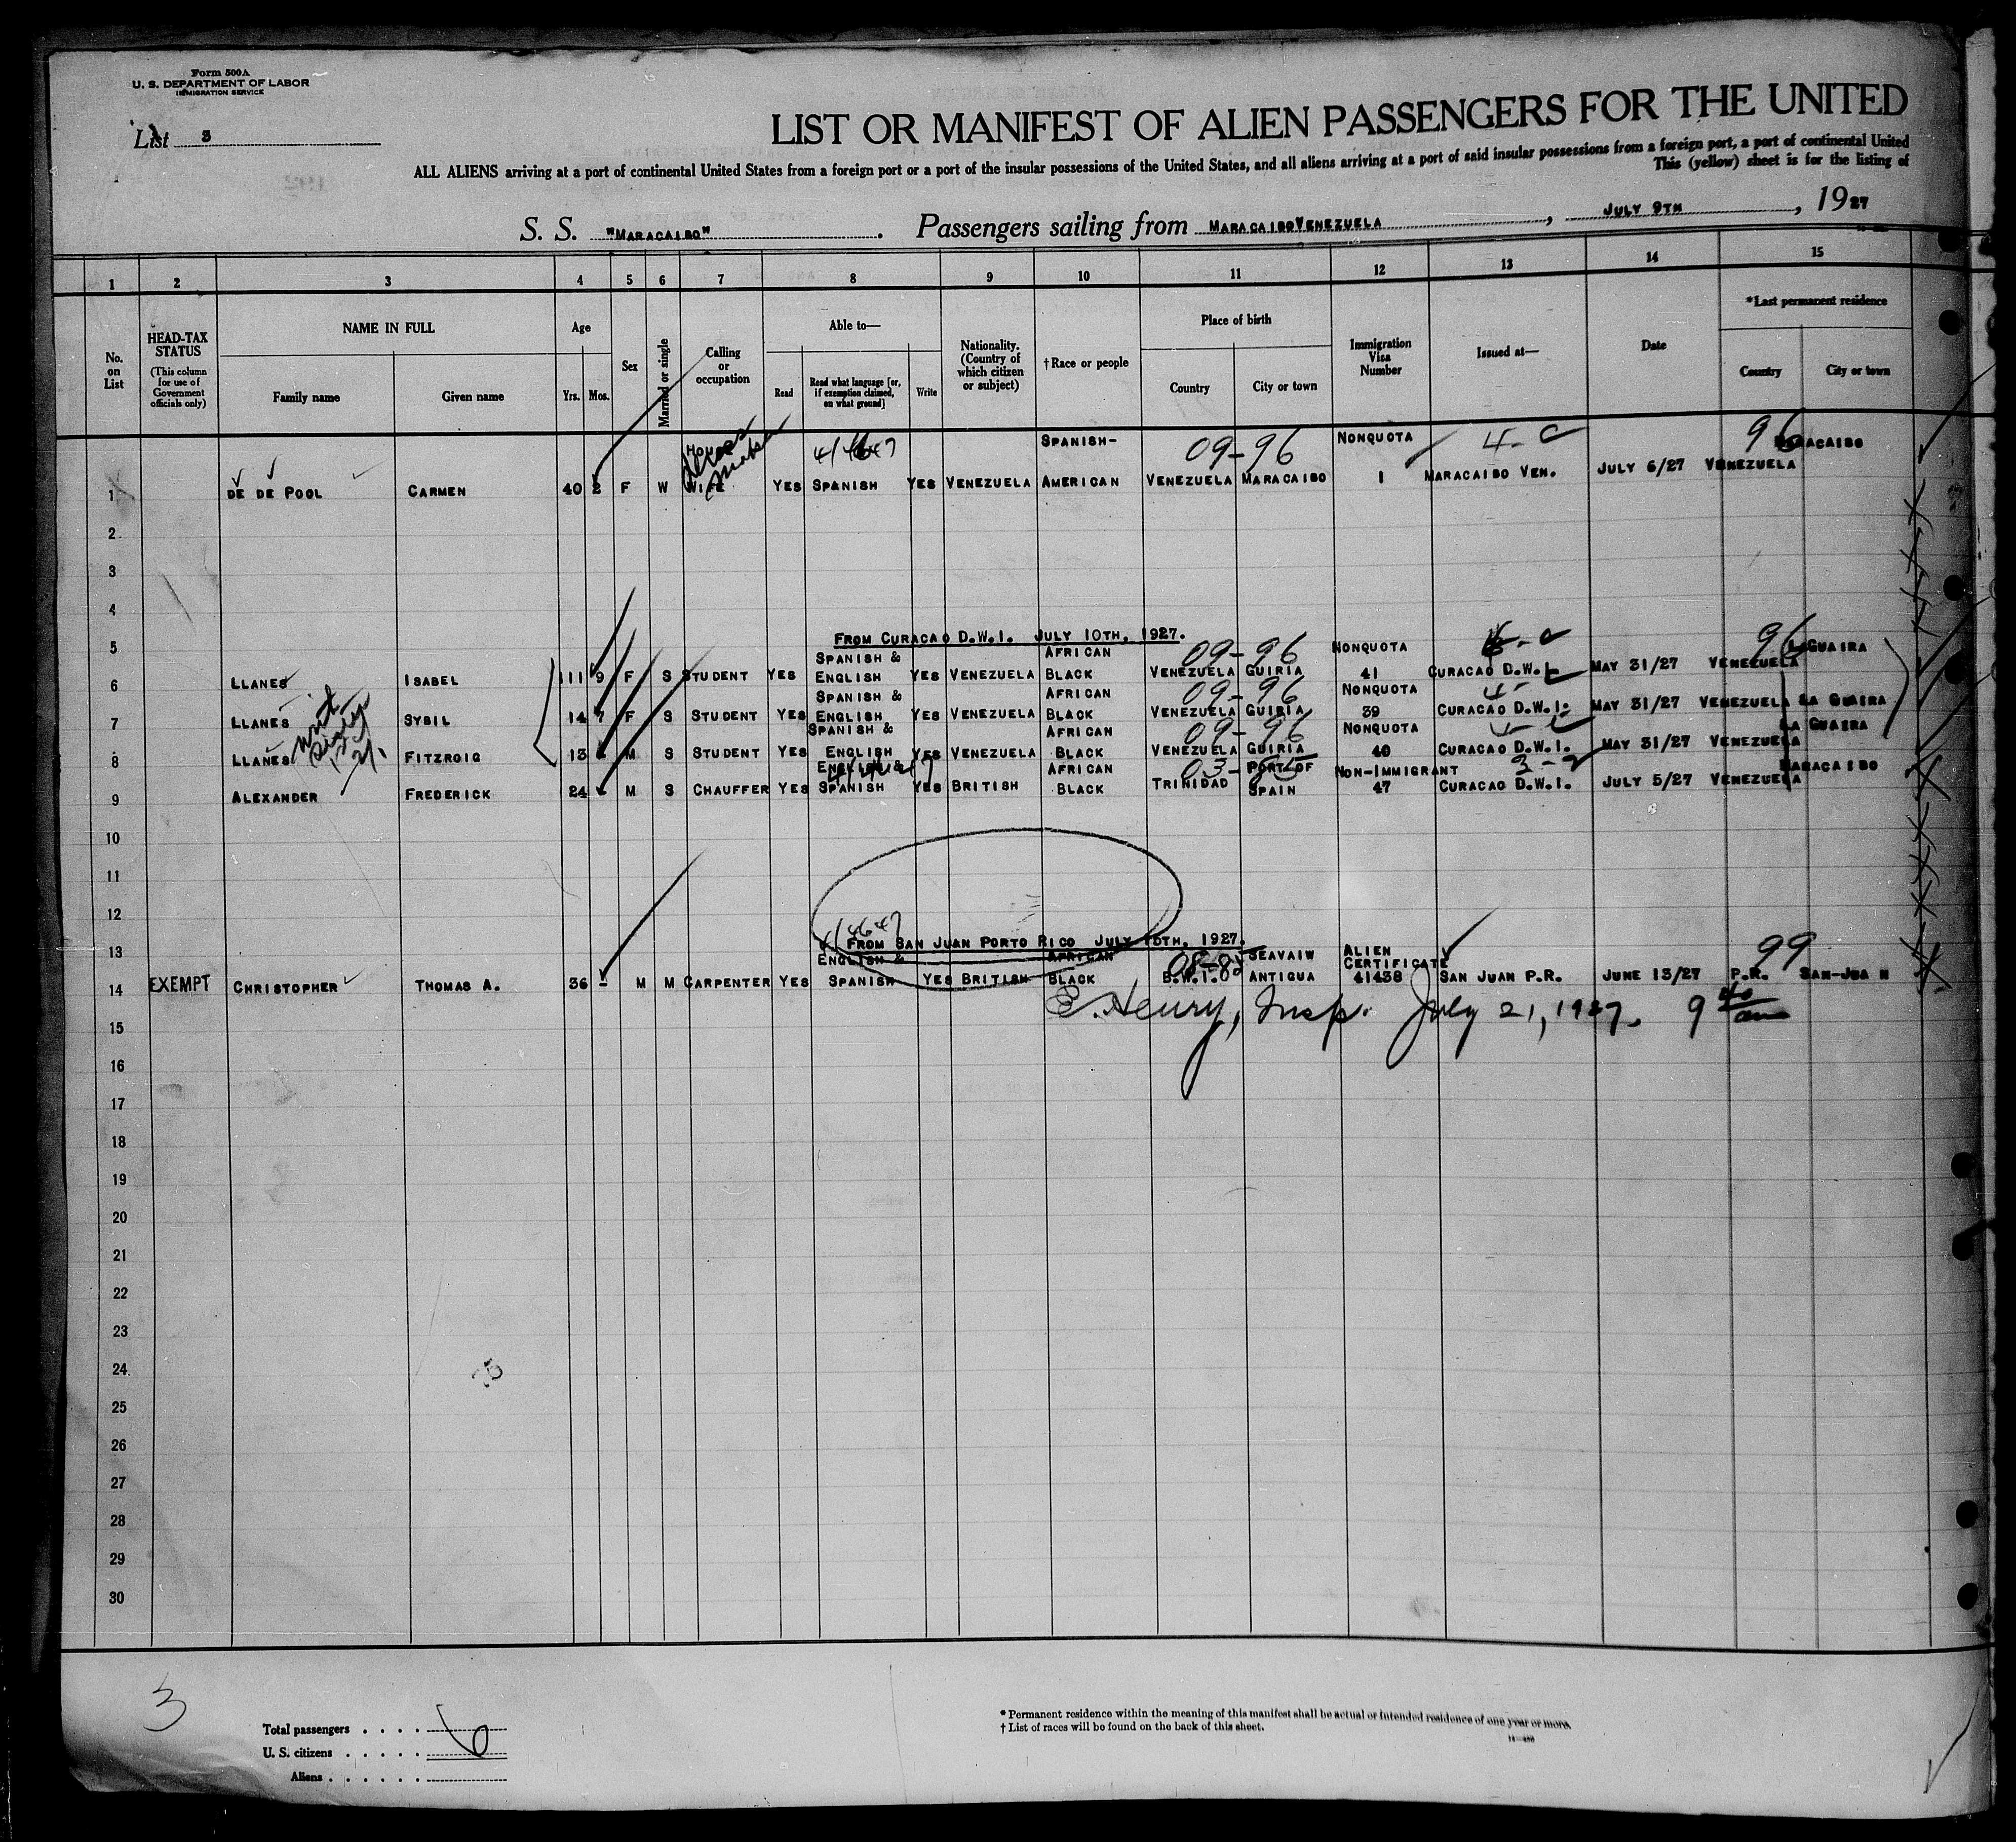 Form 500A
U. S. DEPARTMENT OF LABOR
IMMIGRATION SERVICE
List 3
LIST OR MANIFEST OF ALIEN PASSENGERS FOR THE UNITED
ALL ALIENS arriving at a port of continental United States from a foreign port or a port of the insular possessions of the United States, and all aliens arriving at a port of said insular possessions from a foreign port, a port of continental United
This (yellow) sheet is for the listing of
S. S. "MARACAIBO". Passengers sailing from MARACAIBO VENEZUELA, JULY 9TH, 1927
1 2 3 4 5 6 7 8 9 10 11 12 13 14 15
No. on List
HEAD-TAX STATUS (This column for use of Government officials only)
NAME IN FULL
Family name Given name
Age
Yrs. Mos.
Sex
Married or single
Calling or occupation
Able to—
Read Read what language [or, if exemption claimed, on what ground] Write
Nationality. (Country of which citizen or subject)
†Race or people
Place of birth
Country City or town
Immigration Visa Number
Issued at—
Date
*Last permanent residence
Country City or town
SPANISH- 09-96 NONQUOTA 4-C 96 MARACAIBO
1 DE DE POOL CARMEN 40 2 F W WIFE YES SPANISH YES VENEZUELA AMERICAN VENEZUELA MARACAIBO 1 MARACAIBO VEN. JULY 6/27 VENEZUELA
2
3
4
FROM CURACAO D.W.I. JULY 10TH, 1927.
5 SPANISH & AFRICAN 09-96 NONQUOTA 96 LAGUAIRA
6 LLANES ISABEL 11 9 F S STUDENT YES ENGLISH YES VENEZUELA BLACK VENEZUELA GUIRIA 41 CURACAO D.W.I. MAY 31/27 VENEZUELA
SPANISH & AFRICAN 09-96 NONQUOTA
7 LLANES SYBIL 14 F S STUDENT YES ENGLISH YES VENEZUELA BLACK VENEZUELA GUIRIA 39 CURACAO D.W.I. MAY 31/27 VENEZUELA LA GUAIRA
SPANISH & AFRICAN 09-96 NONQUOTA LA GUAIRA
8 LLANES FITZROIG 13 M S STUDENT YES ENGLISH YES VENEZUELA BLACK VENEZUELA GUIRIA 40 CURACAO D.W.I. MAY 31/27 VENEZUELA
ENGLISH & AFRICAN PORT OF NON-IMMIGRANT 3-2 MARACAIBO
9 ALEXANDER FREDERICK 24 M S CHAUFFER YES SPANISH YES BRITISH BLACK TRINIDAD SPAIN 47 CURACAO D.W.I. JULY 5/27 VENEZUELA
10
11
12
FROM SAN JUAN PORTO RICO JULY 15TH, 1927.
13 ENGLISH & AFRICAN SEAVAIW ALIEN CERTIFICATE 99
14 EXEMPT CHRISTOPHER THOMAS A. 36 - M M CARPENTER YES SPANISH YES BRITISH BLACK B.W.I. ANTIGUA 41438 SAN JUAN P.R. JUNE 13/27 P.R. SAN-JUAN
E. Henry, Insp. July 21, 1927. 9 40 am
15
16
17
18
19
20
21
22
23
24
25
26
27
28
29
30
3
Total passengers . . . . 6
U. S. citizens . . . . .
Aliens . . . . . .
* Permanent residence within the meaning of this manifest shall be actual or intended residence of one year or more.
† List of races will be found on the back of this sheet.